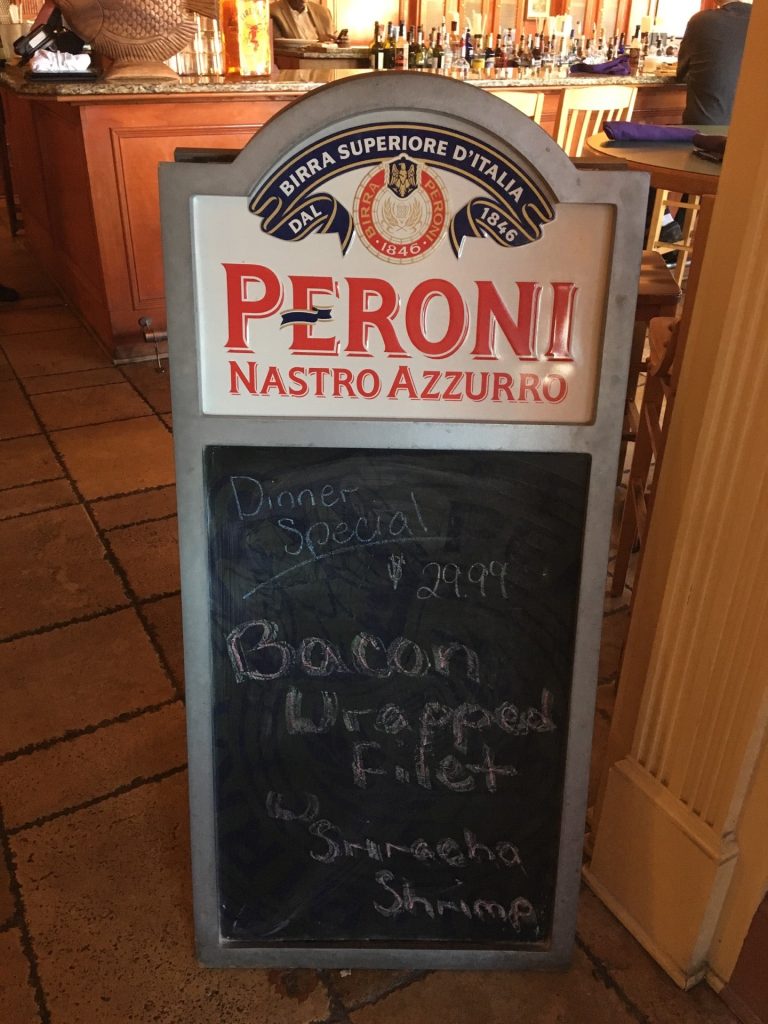 BIRRA SUPERIORE D'ITALIA
DAL 1846
BIRRA PERONI
·1846·
PERONI
NASTRO AZZURRO
Dinner
Special
$29.99
Bacon
Wrapped
Filet
w/
Sriracha
Shrimp